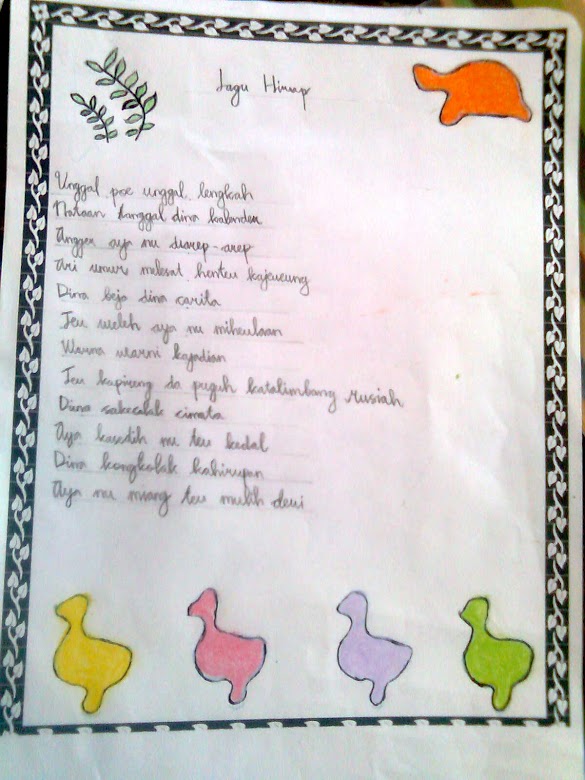 Lagu Hirup
Unggal poe unggal lengkah
Mataan tanggal dina kalender
Angger aya nu diarep-arep
Ari umur melesat henteu kajeueung
Dina beja dina carita
Teu weleh aya nu miheulaan
Warna warni kajadian
Teu kapireng da puguh katalimbang rusiah
Dina sakeclak cimata
Aya kasedih nu teu kedal
Dina kongkolak kahirupan
Aya nu miang teu mulih deui